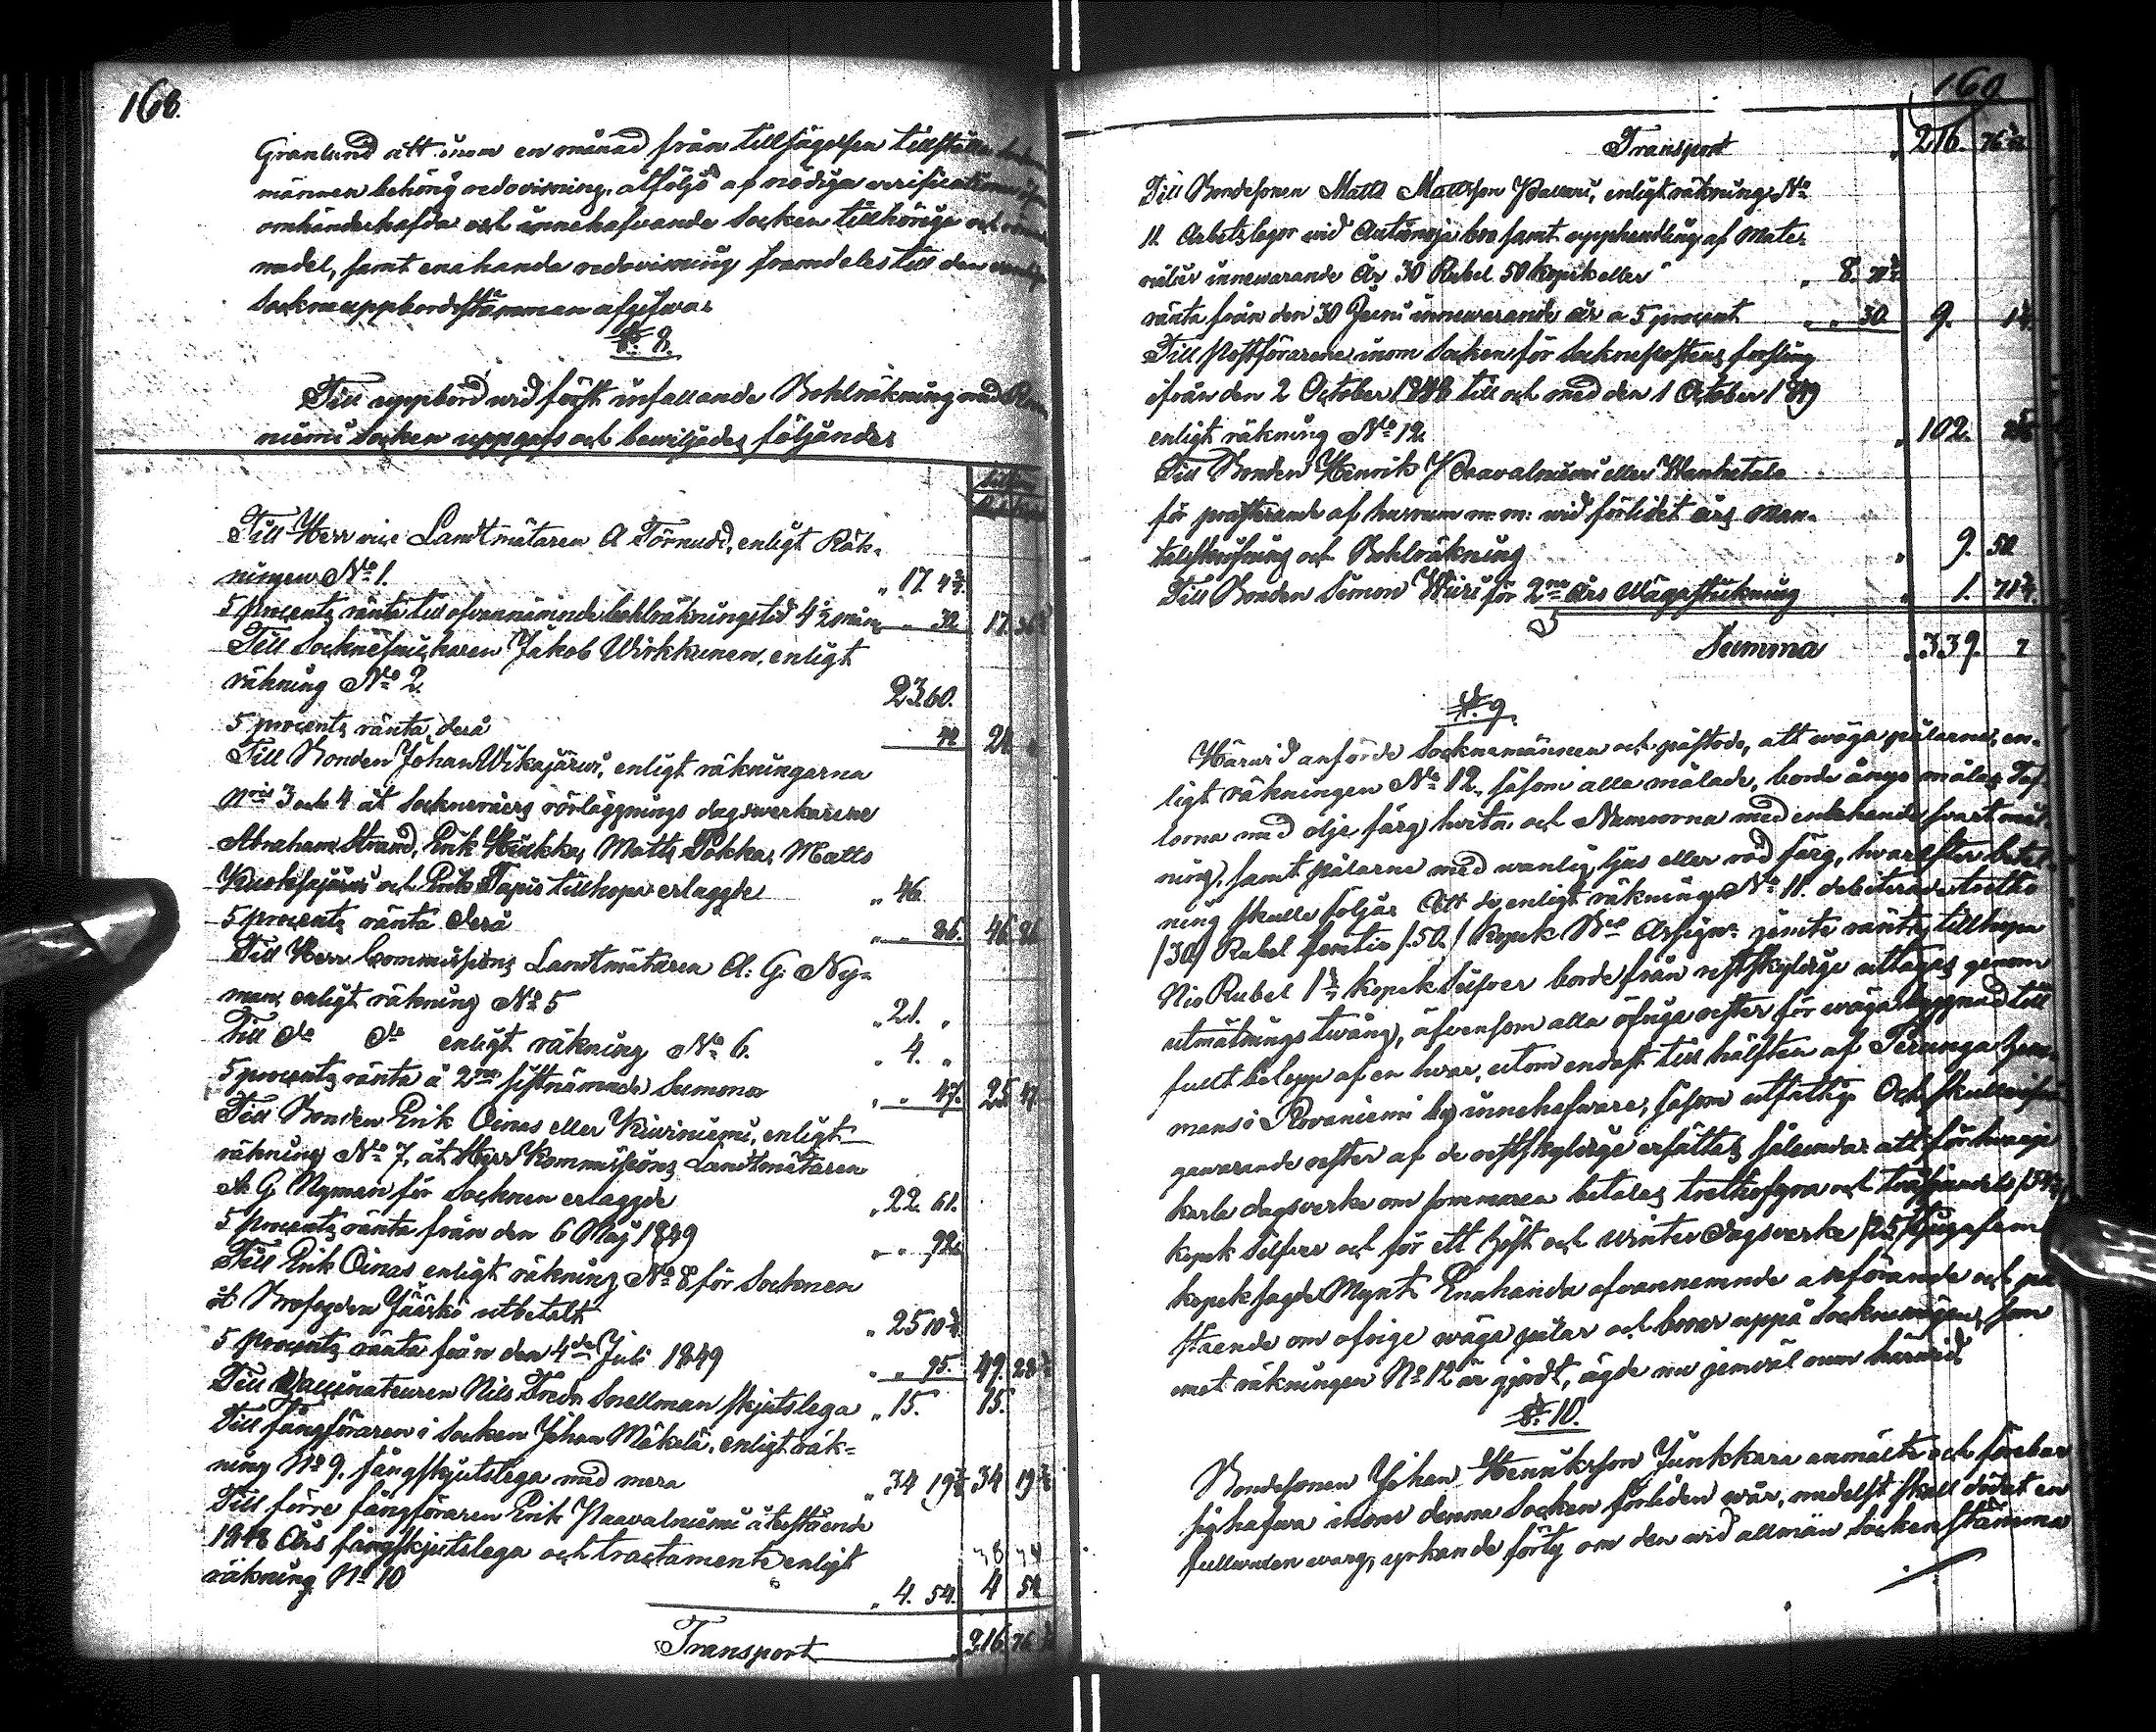 168.
Granlund att inom en månad från tillsägelsen tillställa
männen behörig redovisning, åtföljd af nödiga verificationer
omhänderhafda och innehafvande Socken tillhöriga och
medel, samt enahanda redovisning framdeles till den
Sockneuppbordsstämman afgifvas
§. 8.
Till uppbörd vid först infallande Bohlräkning med
niemi Socken uppgafs och beviljades följande:
Till Herr vice Landtmätaren A Törnudd, enligt Räk-
ningen No 1. " 17. 4 2/7
5 procents ränta till ofvannämnde bohlräkningstid 4 1/2 mån " " 32 17.
Till Sockneskrifvaren Jakob Wirkkunen, enligt
räkning No 2. 23.60.
5 procents ränta derå 24
Till Bonden Johan Wikajärvi, enligt räkningarna
Nris 3 och 4 åt Socknevägs rörläggnings dagsverkarene
Abraham Strand, Erik Hiukka, Matts Pokka, Matts
Kuoksajärvi och Erik Tapio tillhopa erlagde " 46.
5 procents ränta derå " " 86. 46. 86
Till Herr Commissions Landtmätaren A: G: Ny-
man, enligt räkning No 5 " 21. "
Till Do Do enligt räkning No 6. " 4. "
5 procents ränta å 2ne sistnämnda Summor " " 47. 25 47.
Till Bonden Erik Oinas eller Kiviniemi, enligt
räkning No 7, åt Herr Kommissions Landtmätaren
A G Nyman för Socknen erlagde " 22. 61.
5 procents ränta från den 6 Maj 1849 " " 92.
Till Erik Oinas enligt räkning No 8 för Socknen
åt Brofogden Jääskö utbetalt " 25 10
5 procents ränta från den 4de Juli 1849 " " 95. 49. 28
Till Vaccinateuren Nils Fredr Snellman skjutslega " 15. 15.
Till fångföraren i Socken Johan Mäkelä, enligt räk-
ning No 9, fångskjutslega med mera " 34 19 34 19
Till förre fångföraren Erik Paavalniemi återstående
1848 Års fångskjutslega och tractamente enligt
räkning No 10 " 4. 54. 4 54
Transport 216. 76
169
Transport " 216. 76
Till Bondesonen Matts Mattsson Pavari, enligt räkning No
11. Arbetslegor vid Autionoja bro samt upphandling af Mate-
rialier innevarande År 30 Rubel 50 kopek eller " 8. 71
ränta från den 30 Juni innevarande år a 5 procent " " 30. 9. 1
Till Postförarene inom Socken för Sockneposten forsling
ifrån den 2 October 1848 till och med den 1 October 1849
enligt räkning No 12. " 102.
Till Bonden Henrik Paavalniemi eller Wanhatalo
för presterande af husrum m: m: vid förlidet års Man-
talsskrifning och Bohlräkning " 9. 50
Till Bonden Simon Wiiri för 2ne Års Vägastickning " 1. 71
Summa " 339. 7
§. 9.
Härvid anförde Socknemännen och påstodo, att väga pålarne, en-
ligt räkningen No 12, såsom illa målade, borde ånyo målas Taf-
lorna med olje färg hvita och Numrorna med enahanda svart mål-
ning, samt pålarne med vanlig ljus eller röd färg, hvarefter betal-
ning skulle följa. Att de enligt räkning No 11. debiterade trettio
/30/ Rubel femtio /50./ kopek Bco Assigr jämte ränta tillhopa
Nio Rubel 1 kopek Silfver borde från restskyldige uttagas genom
utmätningstvång, äfvensom alla öfriga rester för vägabyggnad till
fullt belopp af en hvar, utom endast till hälften af Terunga hem-
mans i Rovaniemi by innehafware, såsom utfattig. Och skulle
genvarande rester af de restskyldige ersättas sålunda: att för hvarje
karls dagsverke om sommaren betalas trettofyra och
kopek Silfver och för ett höst och vinter dagsverke /25/ tjugufem
kopek sagde Mynt. Enahanda ofvannemnde anförande och på-
stående om ofrige väga pålar och broar uppå Sockenvägen, som
mot räkningen No 12 är gjordt, ägde nu jemväl rum härvid.
§. 10.
Bondesonen Johan Henriksson Junkkara anmälte och förebar
sig hafva inom denna Socken förliden vår, medelst skall dödat en
fullvuxen varg, yrkande förty om den vid allmän Sockenstämma